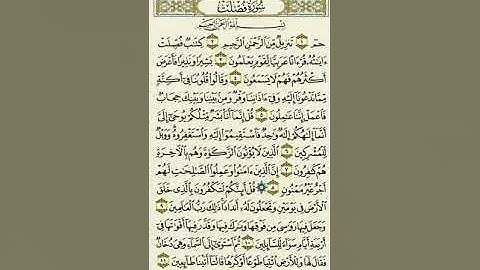 سُورَةُ فُصِّلَتْ
بِسْمِ اللَّهِ الرَّحْمَٰنِ الرَّحِيمِ
حمٓ ١ تَنزِيلٌ مِّنَ الرَّحْمَٰنِ الرَّحِيمِ ٢ كِتَابٌ فُصِّلَتْ
آيَاتُهُ قُرْآنًا عَرَبِيًّا لِّقَوْمٍ يَعْلَمُونَ ٣ بَشِيرًا وَنَذِيرًا فَأَعْرَضَ
أَكْثَرُهُمْ فَهُمْ لَا يَسْمَعُونَ ٤ وَقَالُوا قُلُوبُنَا فِي أَكِنَّةٍ
مِّمَّا تَدْعُونَا إِلَيْهِ وَفِي آذَانِنَا وَقْرٌ وَمِن بَيْنِنَا وَبَيْنِكَ حِجَابٌ
فَاعْمَلْ إِنَّنَا عَامِلُونَ ٥ قُلْ إِنَّمَا أَنَا بَشَرٌ مِّثْلُكُمْ يُوحَىٰ إِلَيَّ
أَنَّمَا إِلَٰهُكُمْ إِلَٰهٌ وَاحِدٌ فَاسْتَقِيمُوا إِلَيْهِ وَاسْتَغْفِرُوهُ وَوَيْلٌ
لِّلْمُشْرِكِينَ ٦ الَّذِينَ لَا يُؤْتُونَ الزَّكَوٰةَ وَهُم بِالْآخِرَةِ
هُمْ كَافِرُونَ ٧ إِنَّ الَّذِينَ آمَنُوا وَعَمِلُوا الصَّالِحَاتِ لَهُمْ
أَجْرٌ غَيْرُ مَمْنُونٍ ٨ قُلْ أَئِنَّكُمْ لَتَكْفُرُونَ بِالَّذِي خَلَقَ
الْأَرْضَ فِي يَوْمَيْنِ وَتَجْعَلُونَ لَهُ أَندَادًا ذَٰلِكَ رَبُّ الْعَالَمِينَ ٩
وَجَعَلَ فِيهَا رَوَاسِيَ مِن فَوْقِهَا وَبَارَكَ فِيهَا وَقَدَّرَ فِيهَا أَقْوَاتَهَا فِي
أَرْبَعَةِ أَيَّامٍ سَوَاءً لِّلسَّائِلِينَ ١٠ ثُمَّ اسْتَوَىٰ إِلَى السَّمَاءِ وَهِيَ دُخَانٌ
فَقَالَ لَهَا وَلِلْأَرْضِ ائْتِيَا طَوْعًا أَوْ كَرْهًا قَالَتَا أَتَيْنَا طَائِعِينَ ١١